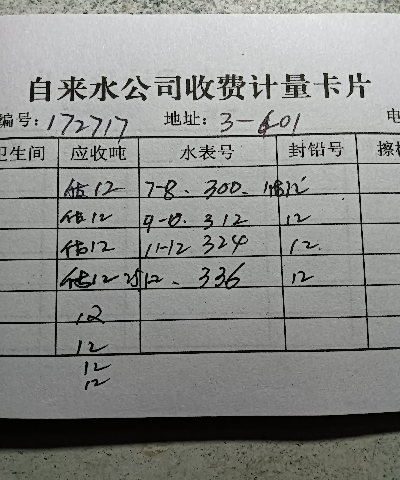 自来水公司收费计量卡片
编号:172717 地址:3-601 电
卫生间 应收吨 水表号 封铅号 擦
估12 7-8. 300. 12
估12 9-0. 312 12
估12 11-12 324 12.
估12 12. 336 12
12
12
12
12